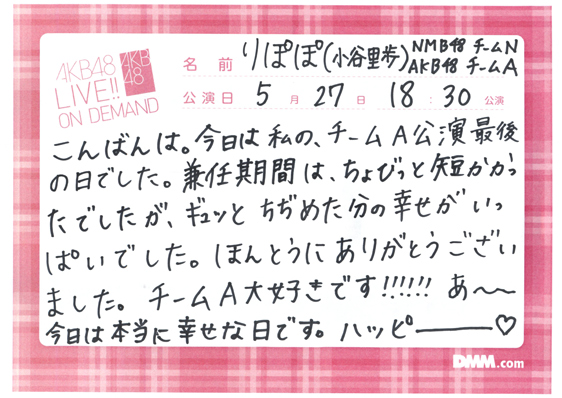 AKB48
LIVE!!
ON DEMAND
AKB
48
名前 りぽぽ(小谷里歩) NMB48 チームN
AKB48 チームA
公演日 5月27日 18:30公演
こんばんは。今日は私の、チームA公演最後
の日でした。兼任期間は、ちょびっと短かかっ
たでしたが、ギュッと ちぢめた分の幸せがいっ
ぱいでした。ほんとうにありがとうござい
ました。チームA大好きです!!!!!! あ〜〜
今日は本当に幸せな日です。ハッピー♡
DMM.com